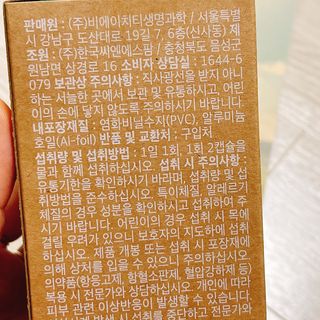 판매원 : (주)비에이치티생명과학 / 서울특별
시 강남구 도산대로 19길 7, 6층(신사동) 제
조원 : (주)한국씨엔에스팜 / 충청북도 음성군
원남면 상경로 16 소비자 상담실 : 1644-6
079 보관상 주의사항 : 직사광선을 받지 아니
하는 서늘한 곳에서 보관 및 유통하시고, 어린
이의 손에 닿지 않도록 주의하시기 바랍니다.
내포장재질 : 염화비닐수지(PVC), 알루미늄
호일(Al-foil) 반품 및 교환처 : 구입처
섭취량 및 섭취방법 : 1일 1회, 1회 2캡슐을
물과 함께 섭취하십시오. 섭취 시 주의사항 :
유통기한을 확인하시기 바라며, 섭취량 및 섭
취방법을 준수하십시오. 특이체질, 알레르기
체질의 경우 성분을 확인하시고 섭취하여 주
시기 바랍니다. 어린이의 경우 섭취 시 목에
걸릴 우려가 있으니 보호자의 지도하에 섭취
하십시오. 제품 개봉 또는 섭취 시 포장재에
의해 상처를 입을 수 있으니 주의 하십시오.
의약품(항응고제, 항혈소판제, 혈압강하제 등)
복용 시 전문가와 상담하십시오. 개인에 따라
피부 관련 이상반응이 발생할 수 있습니다.
발생 시 섭취를 중단하고 전문가와